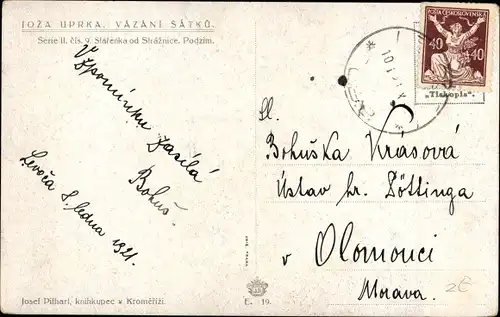 JOŽA UPRKA. VÁZÁNÍ ŠÁTKŮ.
Serie II. čís. 9. Stařenka od Strážnice. Podzim.
V
Vzpomínku zasílá
Bohuš.
Levoča 8. ledna 1921.
Josef Pithart, knihkupec v Kroměříži.
E. 19.
POŠTA ČESKOSLOVENSKÁ
40 40
„Tiskopis“.
Sl.
Bohuška Krásová
Ústav hr. Pöttinga
v Olomouci
Morava.
2€